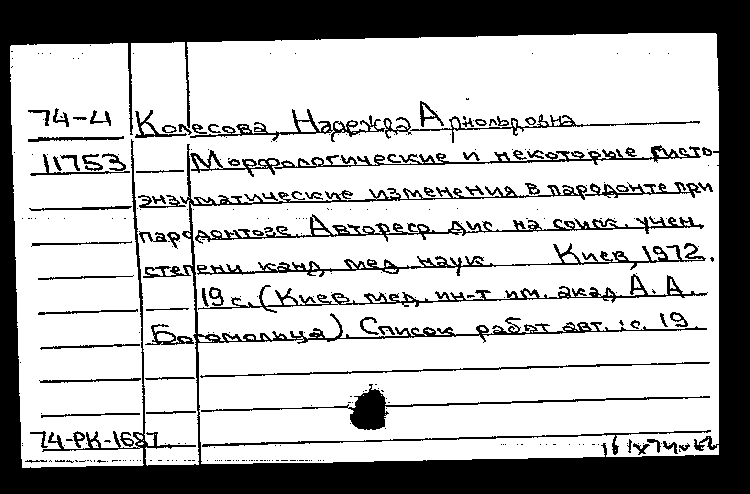 74-4 Колесова, Надежда Арнольдовна
11753 Морфологические и некоторые гисто-
энзиматические изменения в пародонте при
пародонтозе Автореф. дис. на соиск. учен.
степени канд. мед. наук. Киев, 1972.
19 с. (Киев. мед. ин-т им. акад. А. А.
Богомольца). Список работ авт.: с. 19.
74-РК-1687